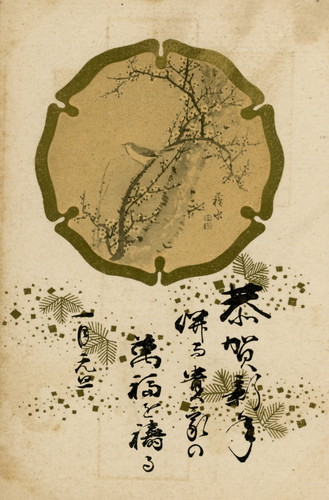 恭賀新年
併る貴家の
萬福を禱る
一月元旦